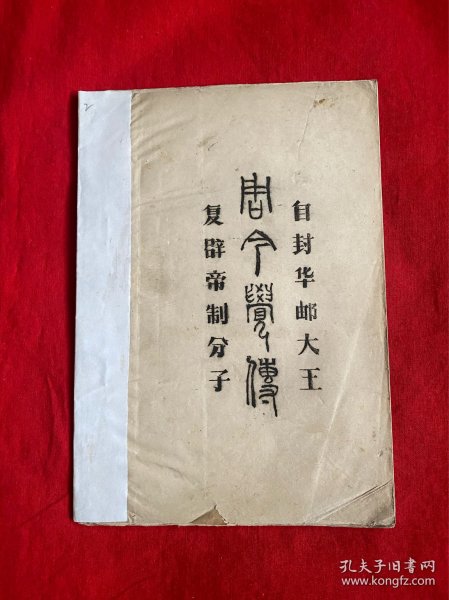 自封华邮大王
周今觉传
复辟帝制分子
2
孔夫子旧书网
www.kongfz.com